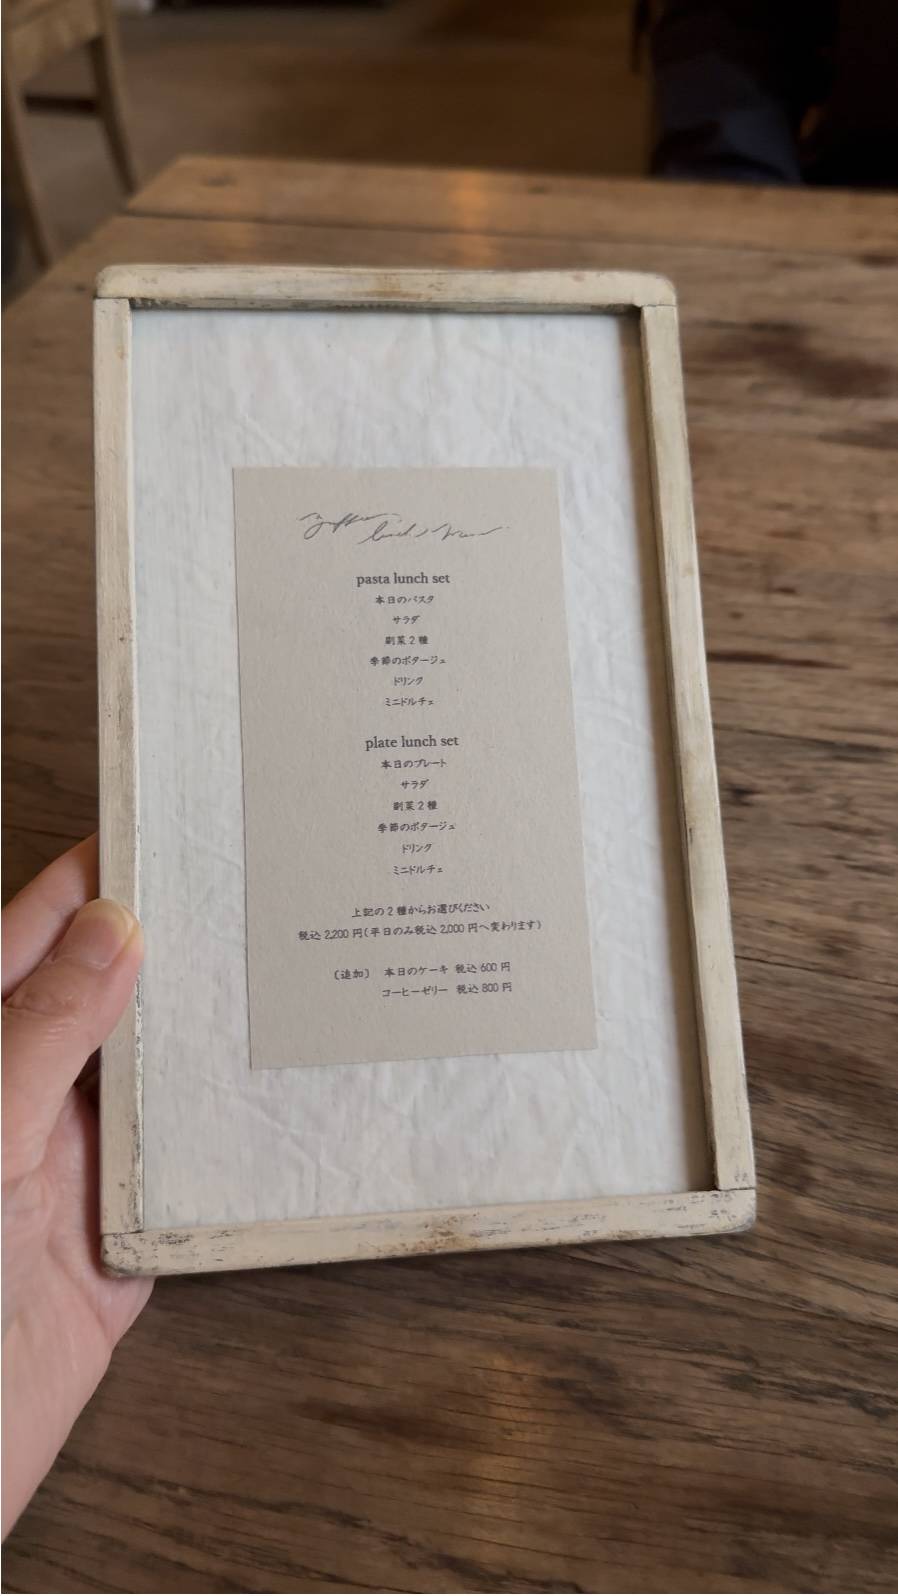 pasta lunch set
本日のパスタ
サラダ
副菜2種
季節のポタージュ
ドリンク
ミニドルチェ
plate lunch set
本日のプレート
サラダ
副菜2種
季節のポタージュ
ドリンク
ミニドルチェ
上記の2種からお選びください
税込2,200円(平日のみ税込2,000円へ変わります)
〔追加〕 本日のケーキ 税込600円
コーヒーゼリー 税込800円